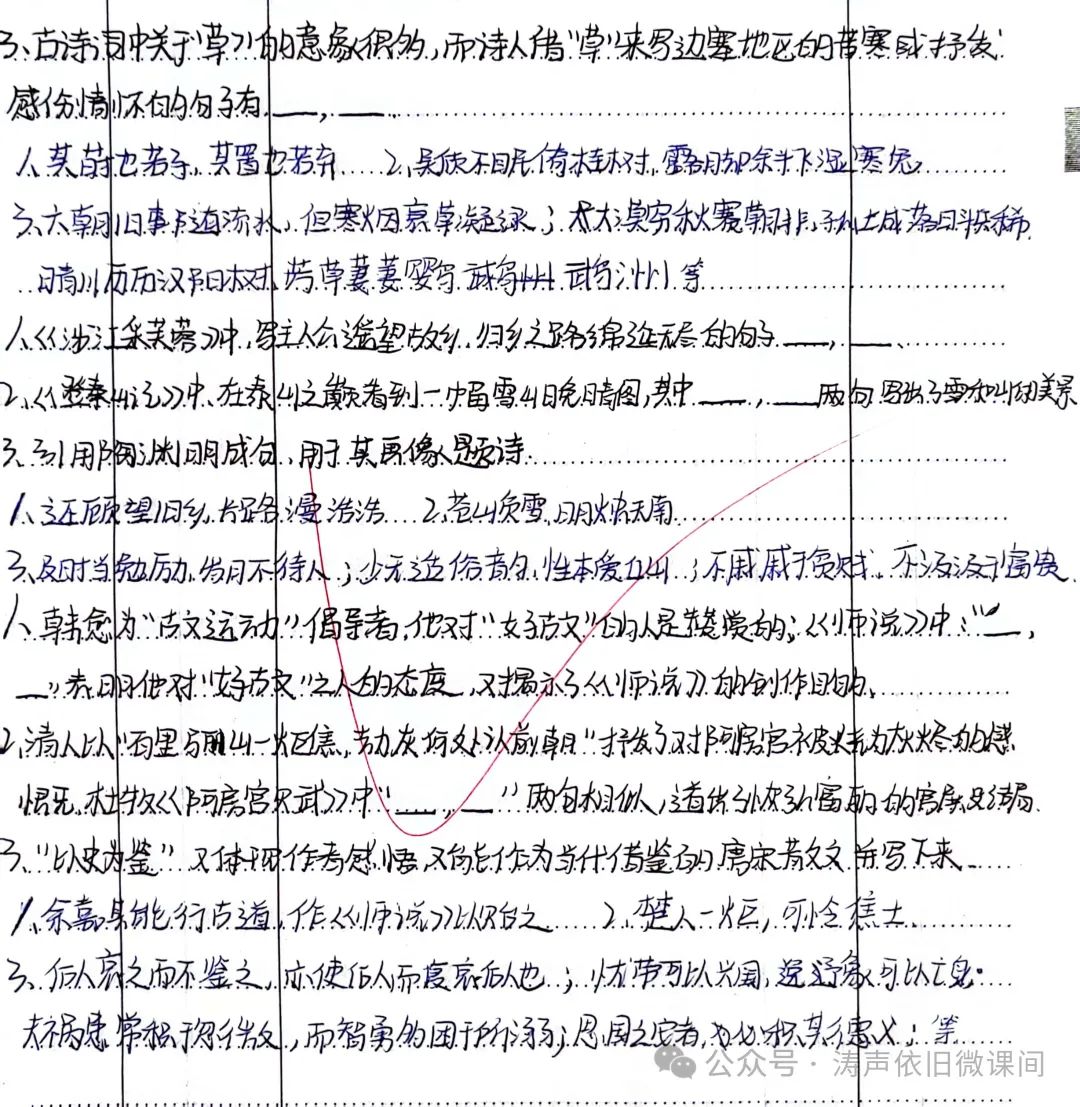 3、古诗词中关于"草"的意象很多,而诗人借"草"来写边塞地区的苦寒或抒发
感伤情怀的句子有___,___。
1、其莳也若子,其置也若弃 2、吴质不眠倚桂树,露脚斜飞湿寒兔
3、六朝旧事随流水,但寒烟衰草凝绿;大漠穷秋塞草腓,孤城落日斗兵稀
晴川历历汉阳树,芳草萋萋鹦鹉洲等
1、《涉江采芙蓉》中,写主人公遥望故乡,归乡之路绵延无尽的句子___,___、
2、《登泰山记》中,在泰山之巅看到一幅雪山晚晴图,其中___,___两句写出了雪和山的美景
3、引用陶渊明成句,用于其画像题诗
1、还顾望旧乡,长路漫浩浩 2、苍山负雪,明烛天南
3、及时当勉励,岁月不待人;少无适俗韵,性本爱丘山;不戚戚于贫贱,不汲汲于富贵
1、韩愈为"古文运动"倡导者,他对"好古文"的人是赞赏的;《师说》中:"___,
___"表明他对"好古文"之人的态度,又揭示了《师说》的创作目的。
2、清人以"百里骊山一炬焦,劫灰何处认前朝"抒发了对阿房宫被烧为灰烬的感
慨,杜牧《阿房宫赋》中"___,___"两句相似,道出了富丽的宫殿的结局。
3、"以史为鉴"又体现作者感悟又能作为当代借鉴的唐宋散文并写下来
1、余嘉其能行古道,作《师说》以贻之 2、楚人一炬,可怜焦土
3、后人哀之而不鉴之,亦使后人而复哀后人也;忧劳可以兴国,逸豫可以亡身;
祸患常积于忽微,而智勇多困于所溺;思国之安者,必积其德义;等
公众号·涛声依旧微课间